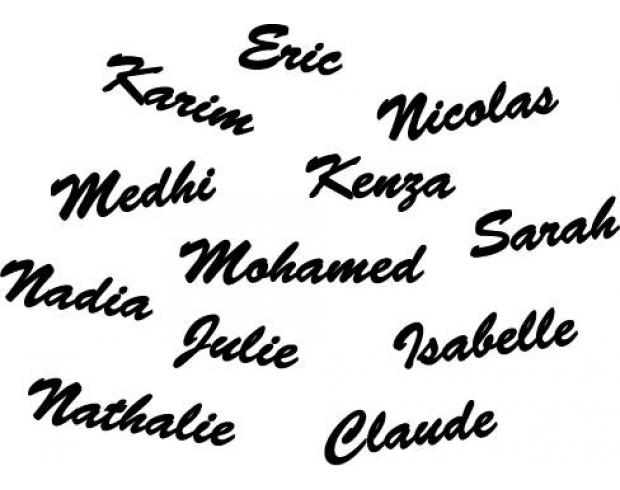 Eric
Karim
Nicolas
Medhi
Kenza
Sarah
Mohamed
Nadia
Julie
Isabelle
Nathalie
Claude